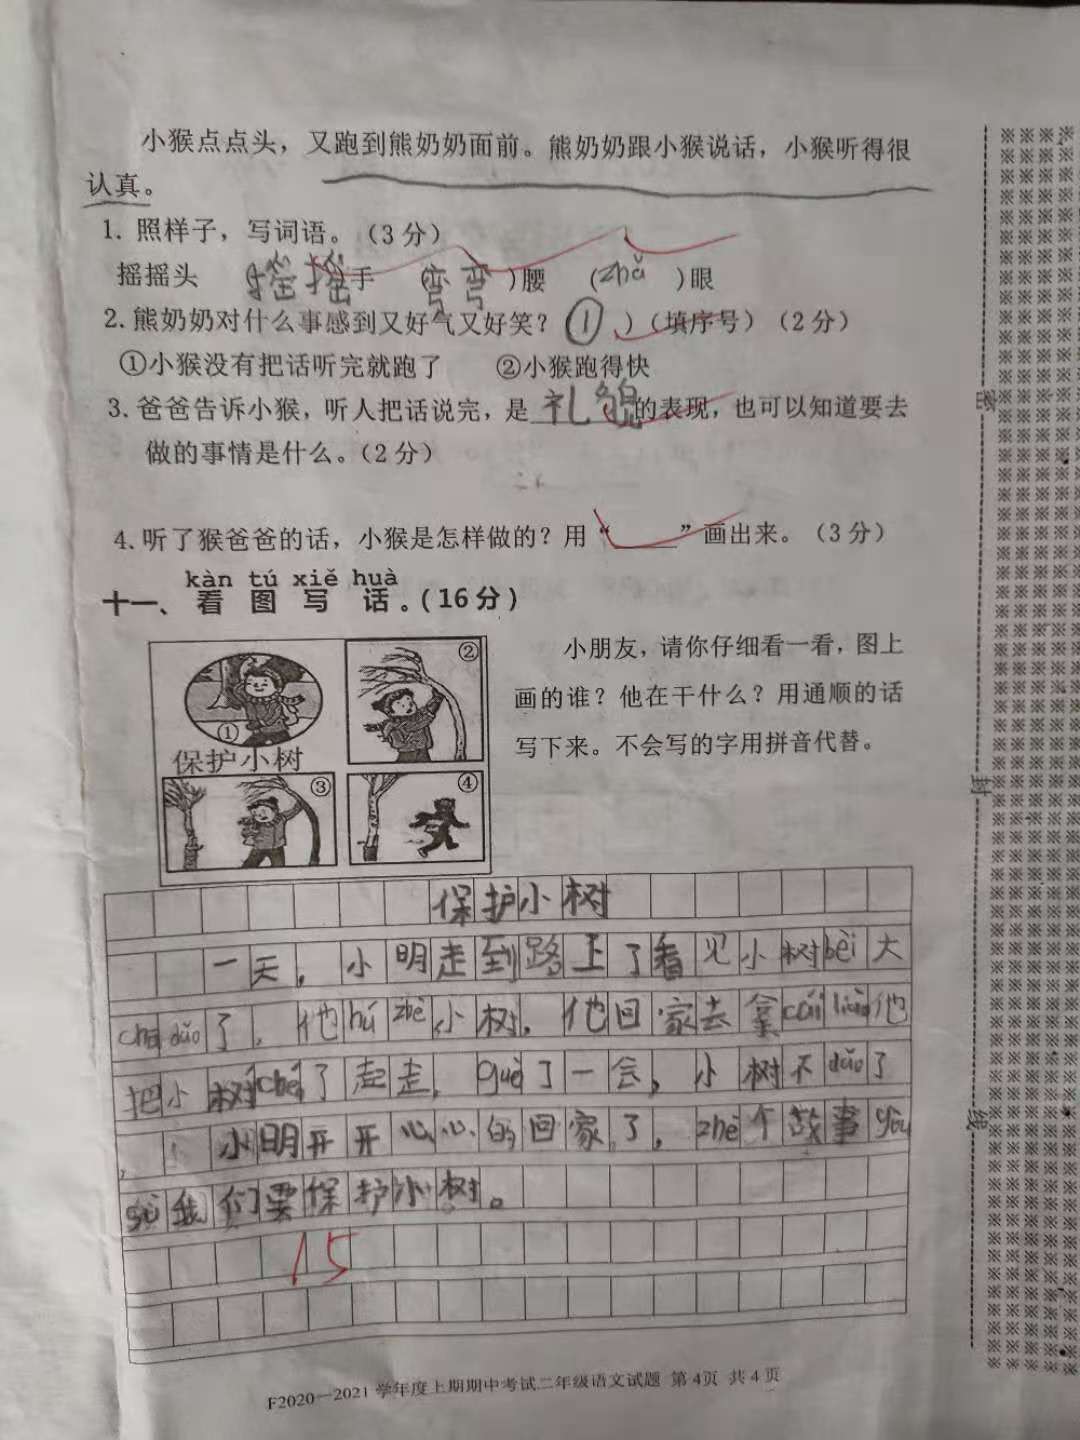 小猴点点头，又跑到熊奶奶面前。熊奶奶跟小猴说话，小猴听得很
认真。
1. 照样子，写词语。（3分）
摇摇头 摇摇手 (弯弯)腰 (zhǎ )眼
2. 熊奶奶对什么事感到又好气又好笑？（①）（填序号）（2分）
①小猴没有把话听完就跑了 ②小猴跑得快
3. 爸爸告诉小猴，听人把话说完，是礼貌的表现，也可以知道要去
做的事情是什么。（2分）
4. 听了猴爸爸的话，小猴是怎样做的？用“____”画出来。（3分）
kàn tú xiě huà
十一、看图写话。（16分）
小朋友，请你仔细看一看，图上
画的谁？他在干什么？用通顺的话
写下来。不会写的字用拼音代替。
①
保护小树
②
③
④
保护小树
一天，小明走到路上了看见小树bèi大
了，他hú zhe小树，他回家去拿 他
把小树 了起走，guò了一会，小树不dǎo了
，小明开开心心的回家了，zhè个故事gào
sù我们要保护小树。
15
F2020—2021学年度上期期中考试二年级语文试题 第4页 共4页
密
封
线